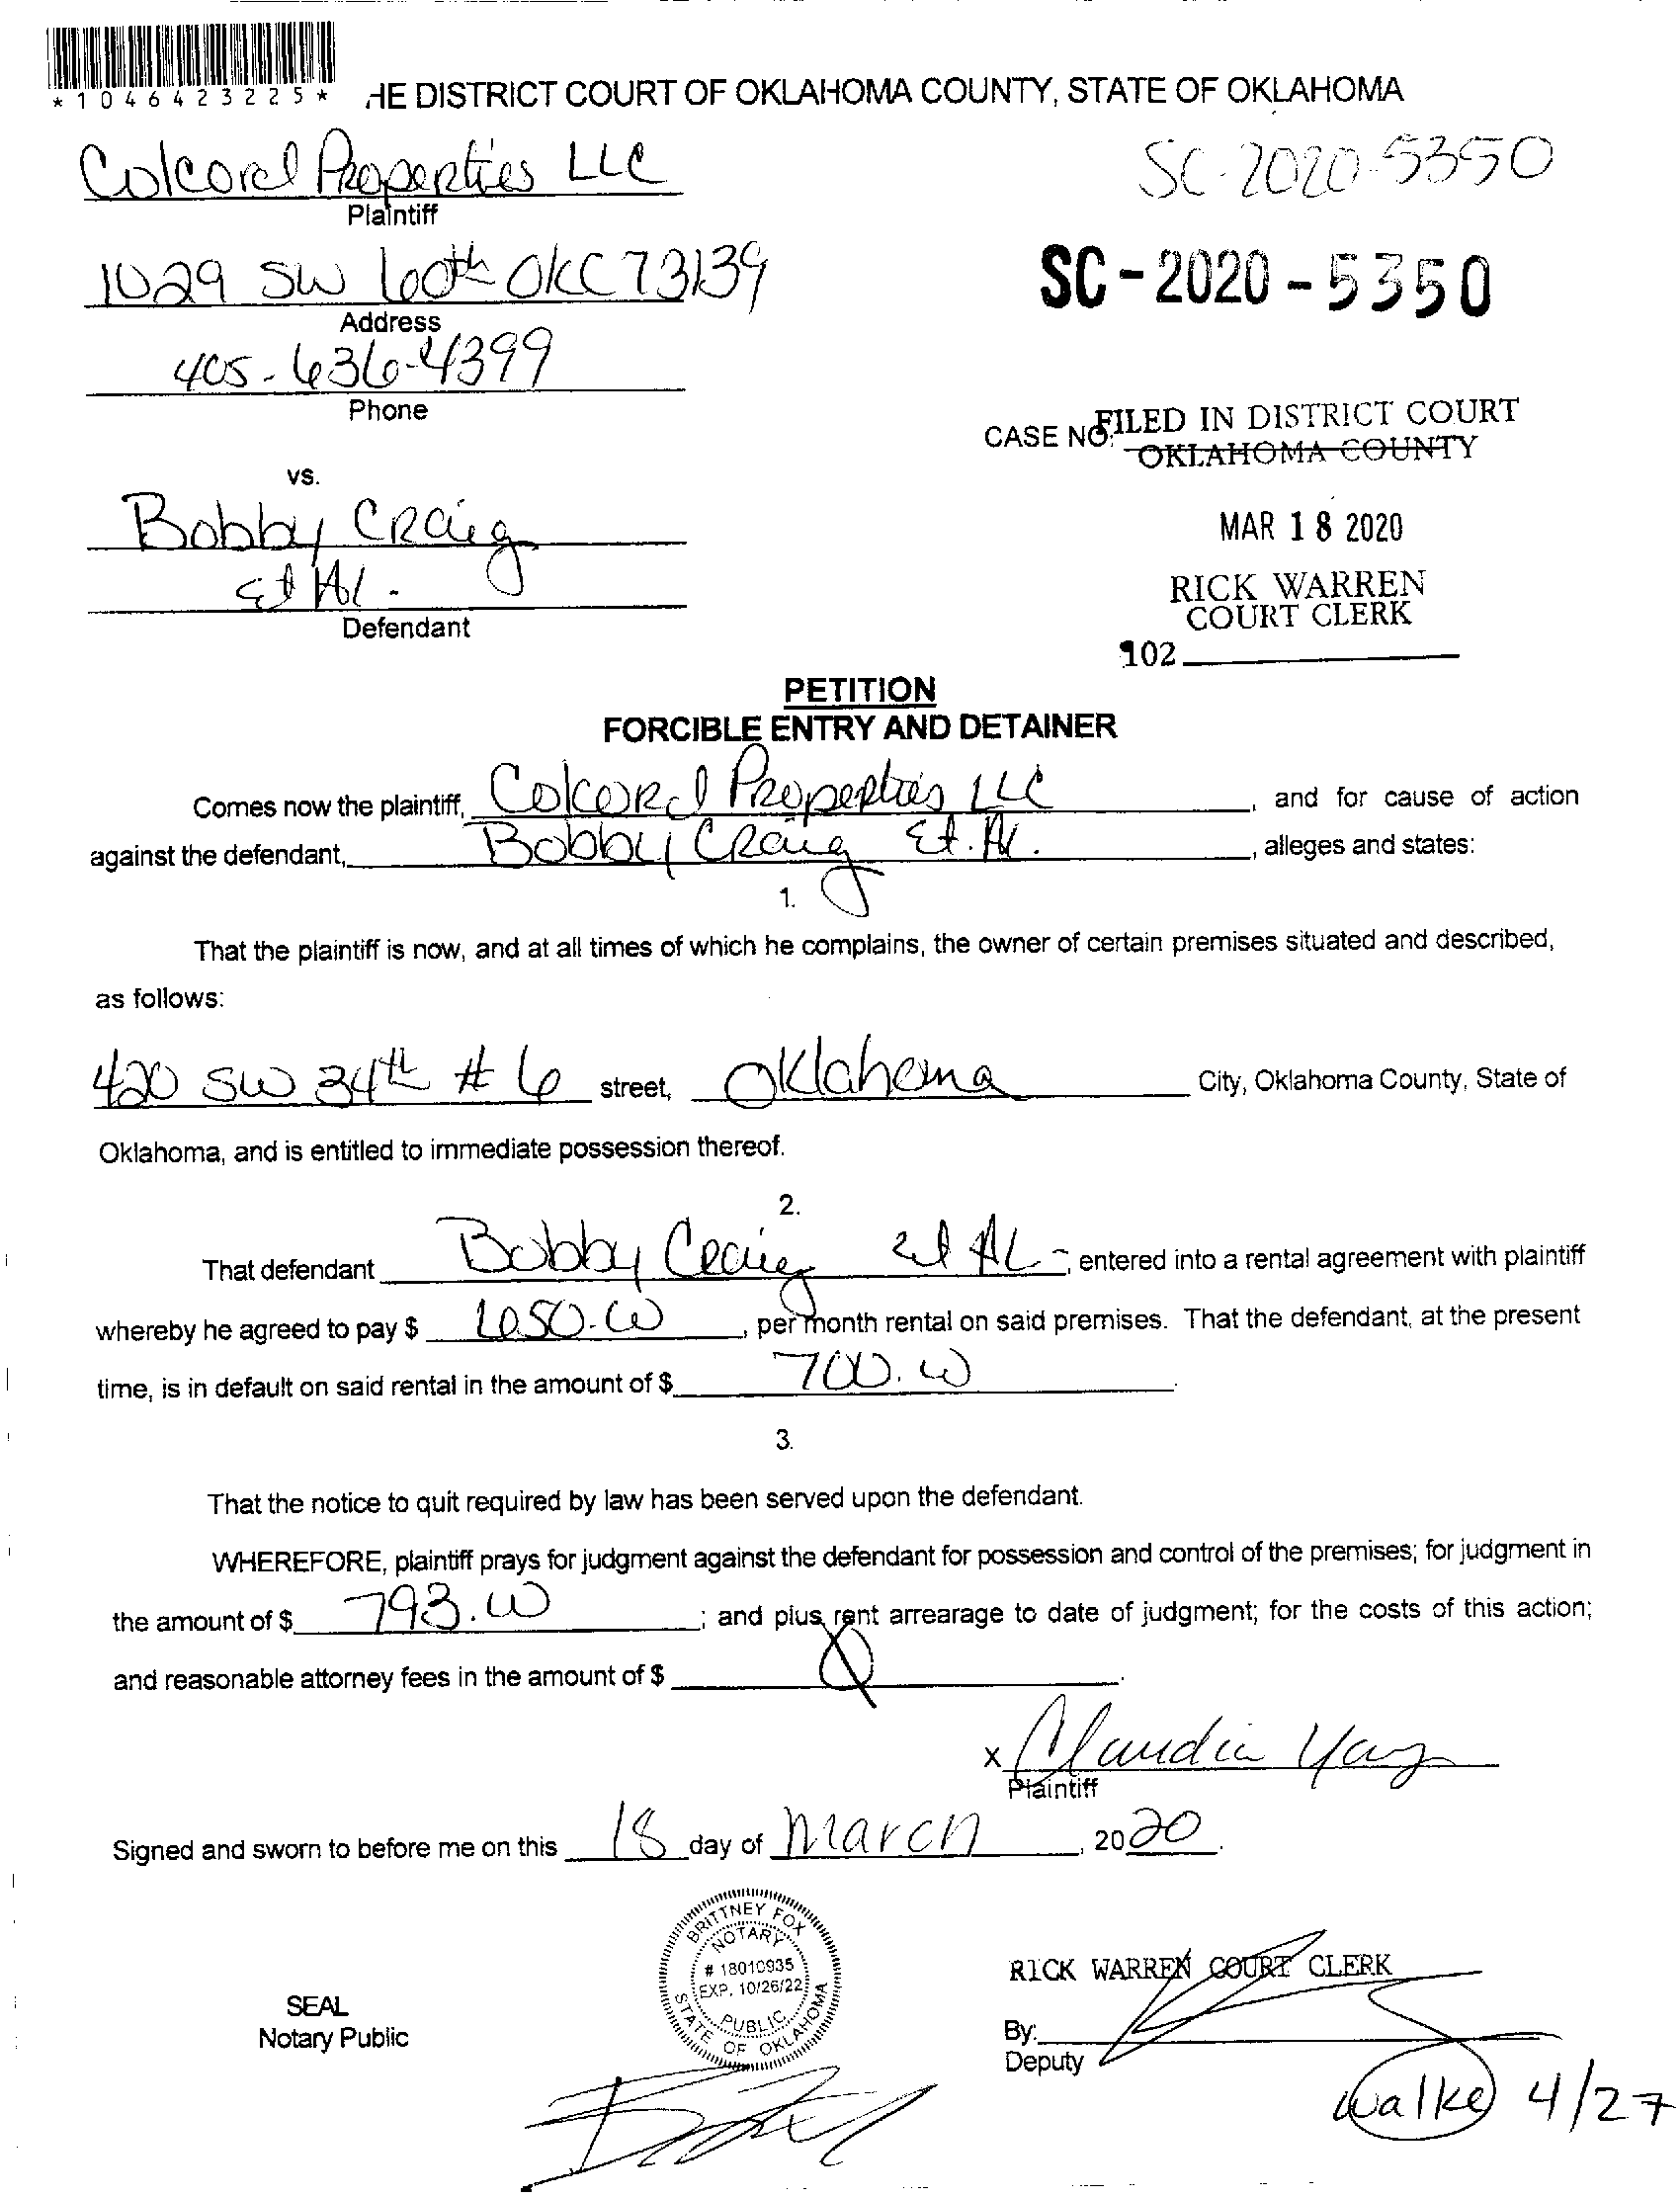 *1046423225*
HE DISTRICT COURT OF OKLAHOMA COUNTY, STATE OF OKLAHOMA
Colcord Properties LLC
SC-2020-5350
Plaintiff
1029 SW 60th OKC 73139
SC-2020-5350
Address
405-636-4399
Phone
CASE NO:
FILED IN DISTRICT COURT
OKLAHOMA COUNTY
vs.
Bobby Craig
MAR 18 2020
Et Al.
RICK WARREN
COURT CLERK
Defendant
102
PETITION
FORCIBLE ENTRY AND DETAINER
Comes now the plaintiff, Colcord Properties LLC, and for cause of action
against the defendant, Bobby Craig Et. Al., alleges and states:
1.
That the plaintiff is now, and at all times of which he complains, the owner of certain premises situated and described,
as follows:
420 SW 34th # 6 street, Oklahoma City, Oklahoma County, State of
Oklahoma, and is entitled to immediate possession thereof.
2.
That defendant Bobby Craig et AL, entered into a rental agreement with plaintiff
whereby he agreed to pay $ 650.00, per month rental on said premises. That the defendant, at the present
time, is in default on said rental in the amount of $ 700.00.
3.
That the notice to quit required by law has been served upon the defendant.
WHEREFORE, plaintiff prays for judgment against the defendant for possession and control of the premises; for judgment in
the amount of $ 793.00; and plus rent arrearage to date of judgment; for the costs of this action;
and reasonable attorney fees in the amount of $ 0.
x Claudia
Plaintiff
Signed and sworn to before me on this 18 day of March, 2020.
BRITTNEY FOX
NOTARY
# 18010935
EXP. 10/26/22
PUBLIC
STATE OF OKLAHOMA
RICK WARREN COURT CLERK
SEAL
Notary Public
By:
Deputy
Walke 4/27